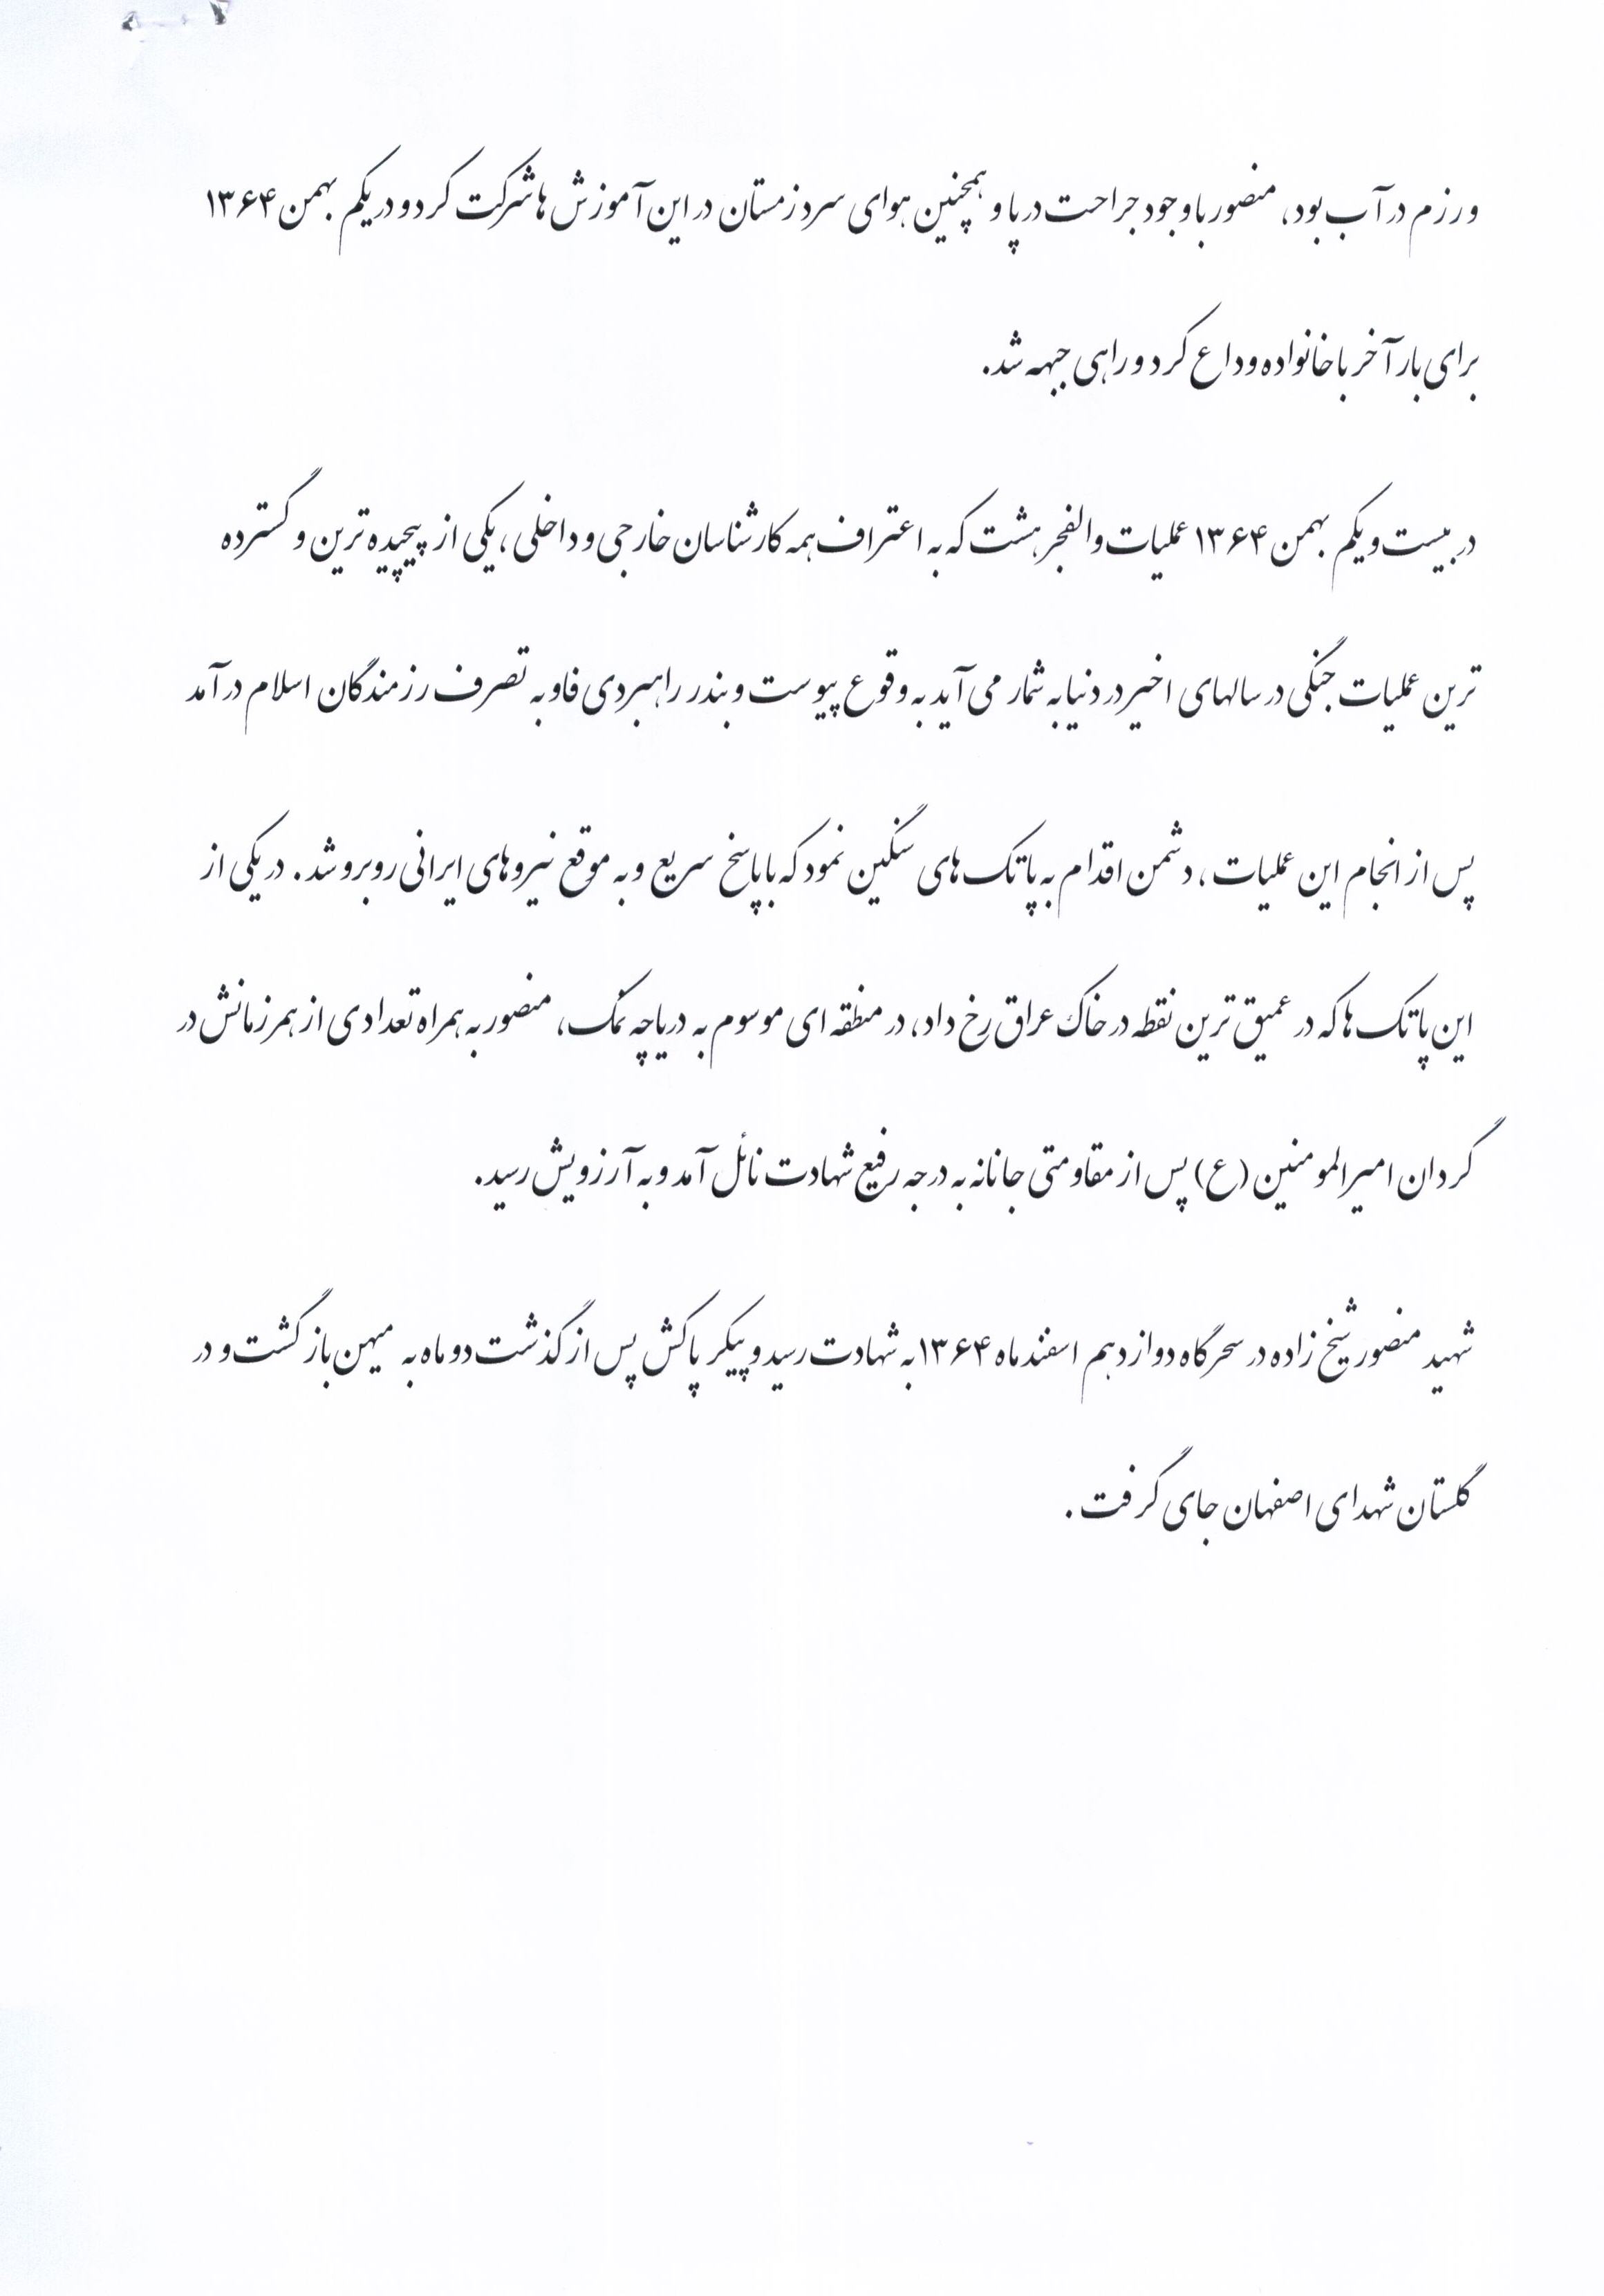 ورزم در آب بود، منصور با وجود جراحت در پا و همچنین هوای سرد زمستان در این آموزش ها شرکت کرد و در یکم بهمن ۱۳۶۴
برای بار آخر با خانواده وداع کرد و راهی جبهه شد.
در بیست و یکم بهمن ۱۳۶۴ عملیات والفجر هشت که به اعتراف همه کارشناسان خارجی و داخلی، یکی از پیچیده ترین و گسترده
ترین عملیات جنگی در سالهای اخیر در دنیا به شمار می آید به وقوع پیوست و بندر راهبردی فاو به تصرف رزمندگان اسلام درآمد
پس از انجام این عملیات، دشمن اقدام به پاتک های سنگین نمود که با پاسخ سریع و به موقع نیروهای ایرانی روبرو شد. در یکی از
این پاتک ها که در عمیق ترین نقطه در خاک عراق رخ داد، در منطقه ای موسوم به دریاچه نمک، منصور به همراه تعدادی از همرزمانش در
گردان امیرالمومنین (ع) پس از مقاومتی جانانه به درجه رفیع شهادت نائل آمد و به آرزویش رسید.
شهید منصور شیخ زاده در سحرگاه دوازدهم اسفند ماه ۱۳۶۴ به شهادت رسید و پیکر پاکش پس از گذشت دو ماه به میهن بازگشت و در
گلستان شهدای اصفهان جای گرفت.